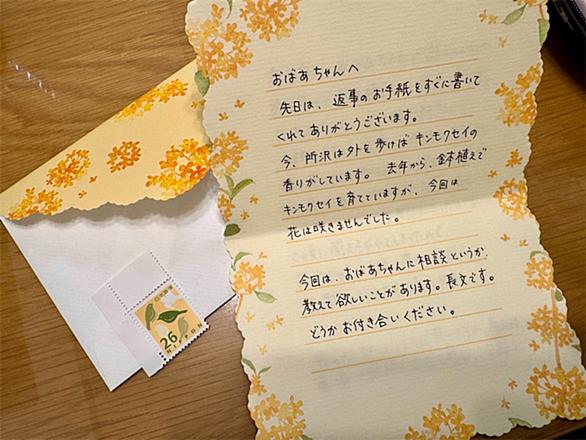 おばあちゃんへ
先日は、返事のお手紙をすぐに書いて
くれてありがとうございます。
今、所沢は外を歩けばキンモクセイの
香りがしています。去年から、鉢植えで
キンモクセイを育てていますが、今回は
花は咲きませんでした。
今回は、おばあちゃんに相談というか、
教えて欲しいことがあります。長文です。
どうかお付き合いください。
26